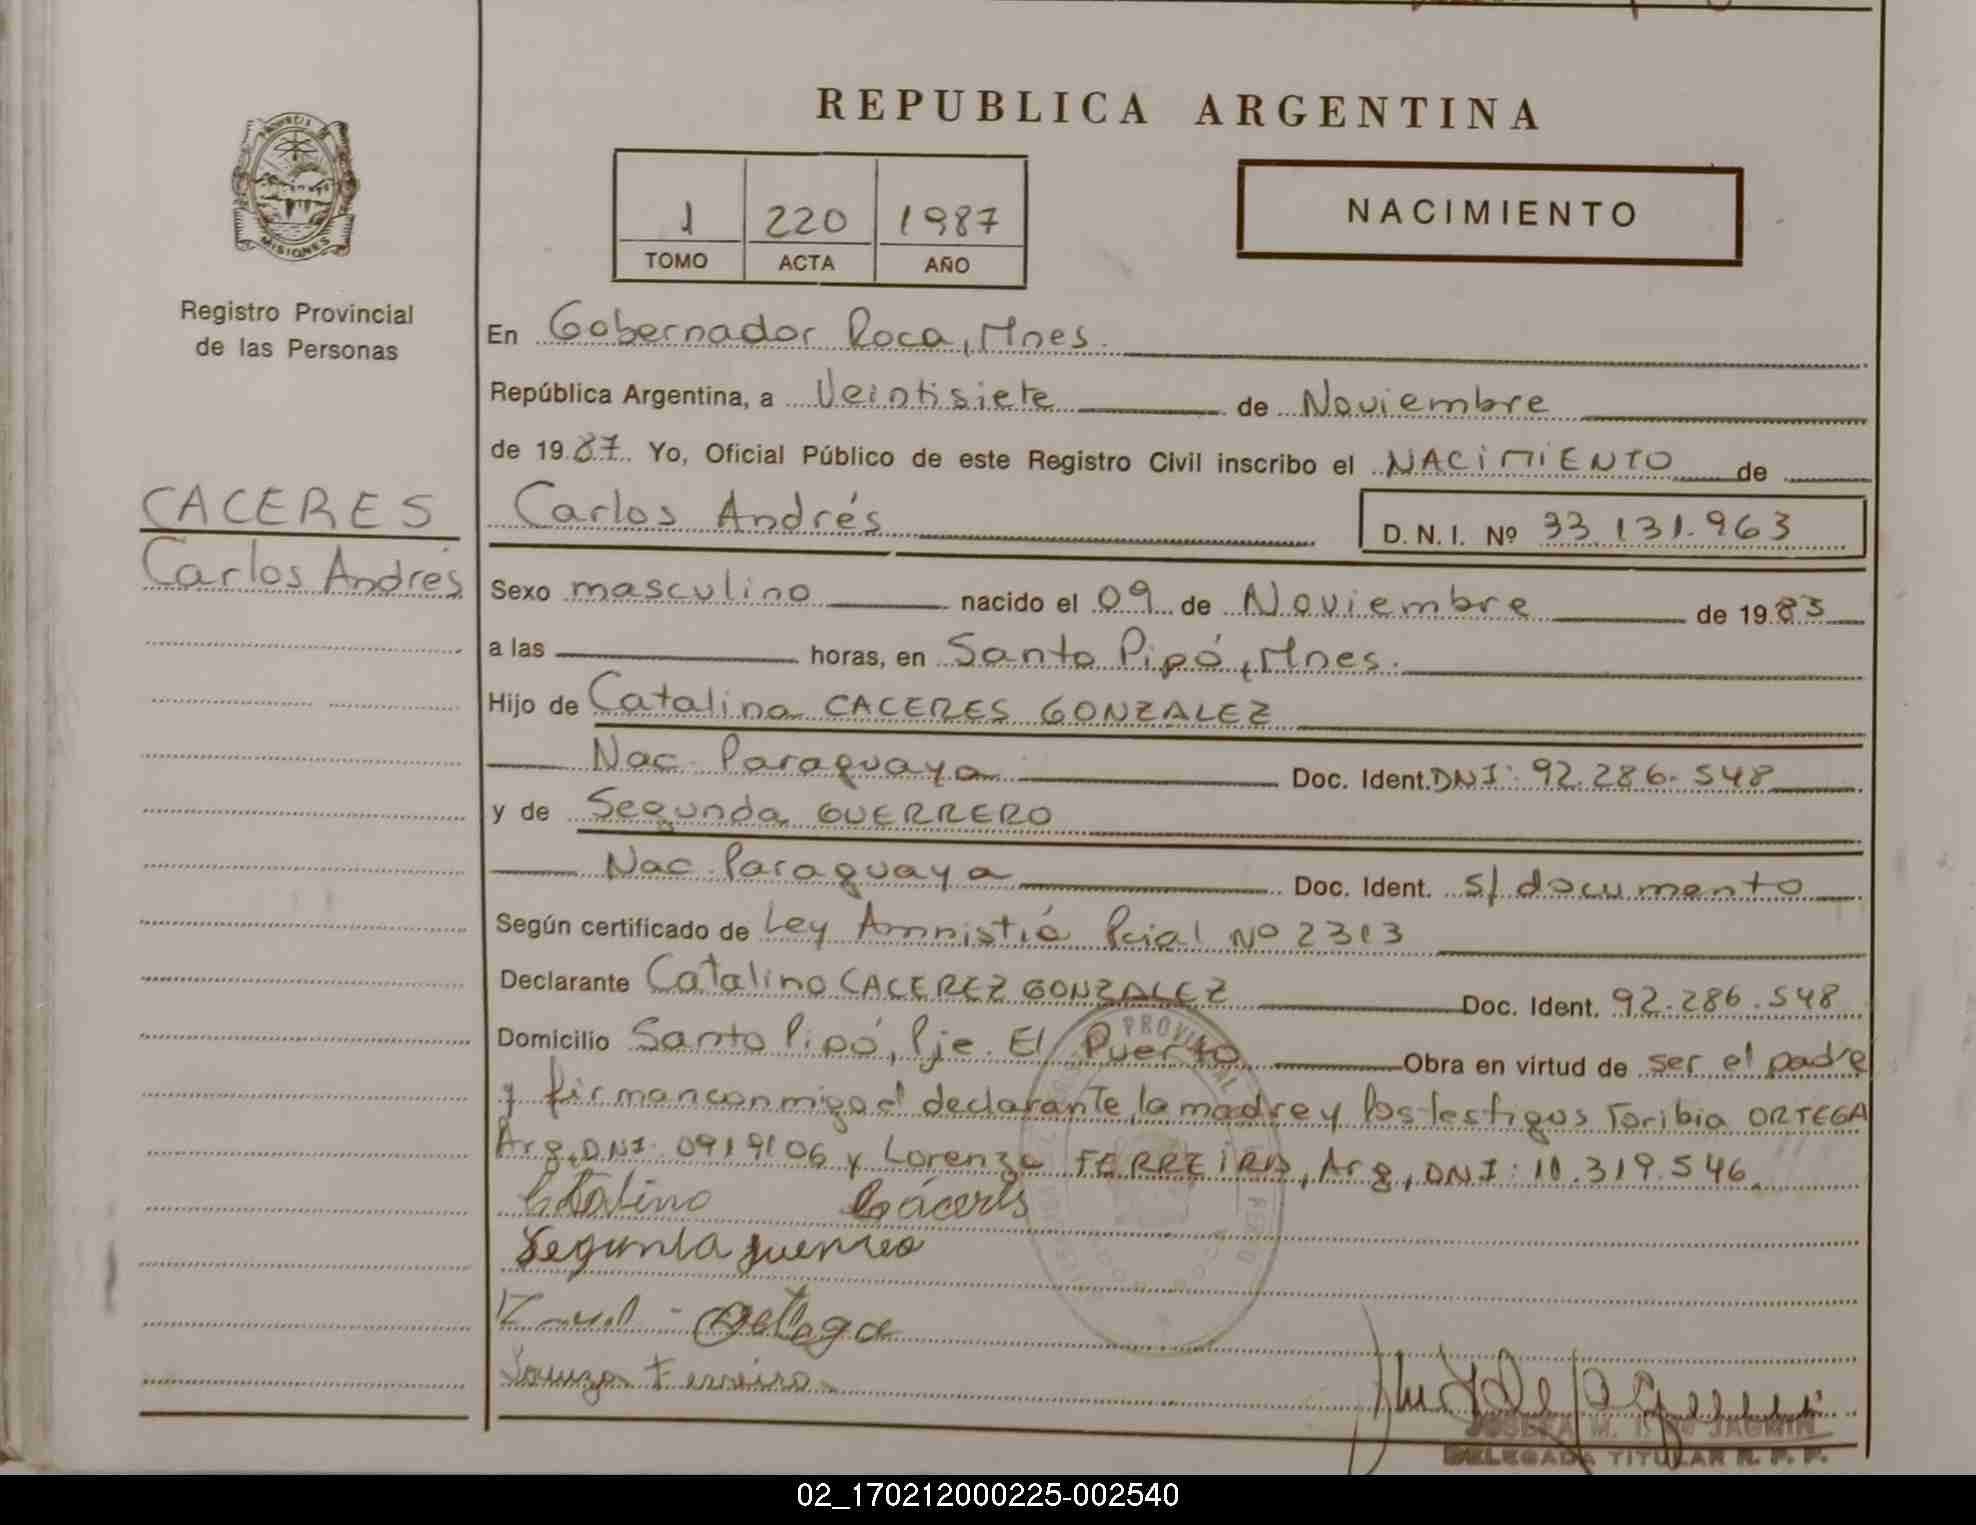 REPUBLICA ARGENTINA
MISIONES
Registro Provincial
de las Personas
1 220 1987
TOMO ACTA AÑO
NACIMIENTO
En Gobernador Roca, Mnes.
República Argentina, a Veintisiete de Noviembre
de 1987 Yo, Oficial Público de este Registro Civil inscribo el NACIMIENTO de
CACERES
Carlos Andrés
Carlos Andrés D. N. I. Nº 33.131.963
Sexo masculino nacido el 09 de Noviembre de 1983
a las horas, en Santo Pipó, Mnes.
Hijo de Catalino CACERES GONZALEZ
Nac. Paraguaya Doc. Ident. DNI: 92.286.548
y de Segunda GUERRERO
Nac. Paraguaya Doc. Ident. s/ documento
Según certificado de Ley Amnistía Pcial Nº 2313
Declarante Catalino CACEREZ GONZALEZ Doc. Ident. 92.286.548
Domicilio Santo Pipó, Pje. El Puerto Obra en virtud de ser el padre
y firman conmigo el declarante, la madre y los testigos Toribia ORTEGA
Arg, DNI: 0919106 y Lorenzo FERREIRA, Arg, DNI: 10.319.546.
Catalino Cáceres
Segunda guerrero
Ortega
Lorenzo Ferreira
DELEGADA TITULAR R. P. P.
02_170212000225-002540